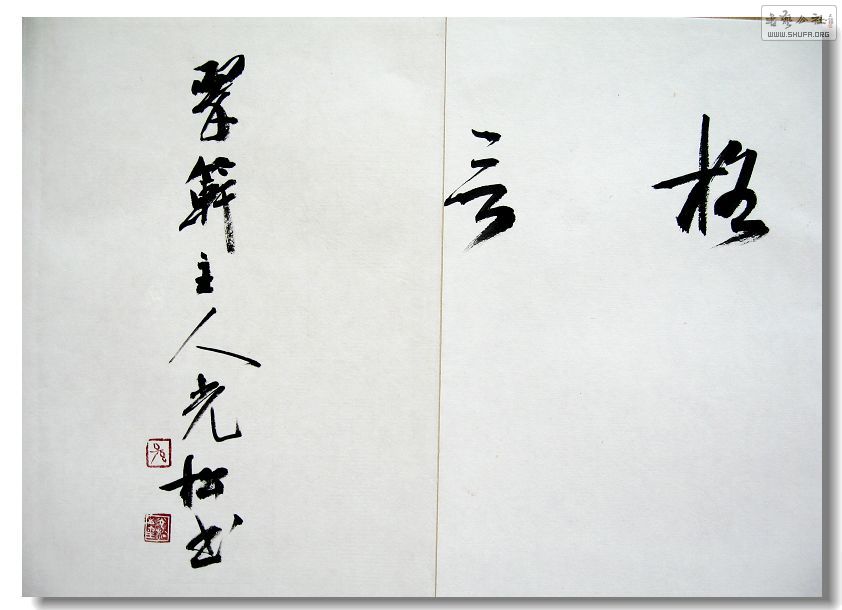 格言
翠簃主人光松书
书艺公社
WWW.SHUFA.ORG